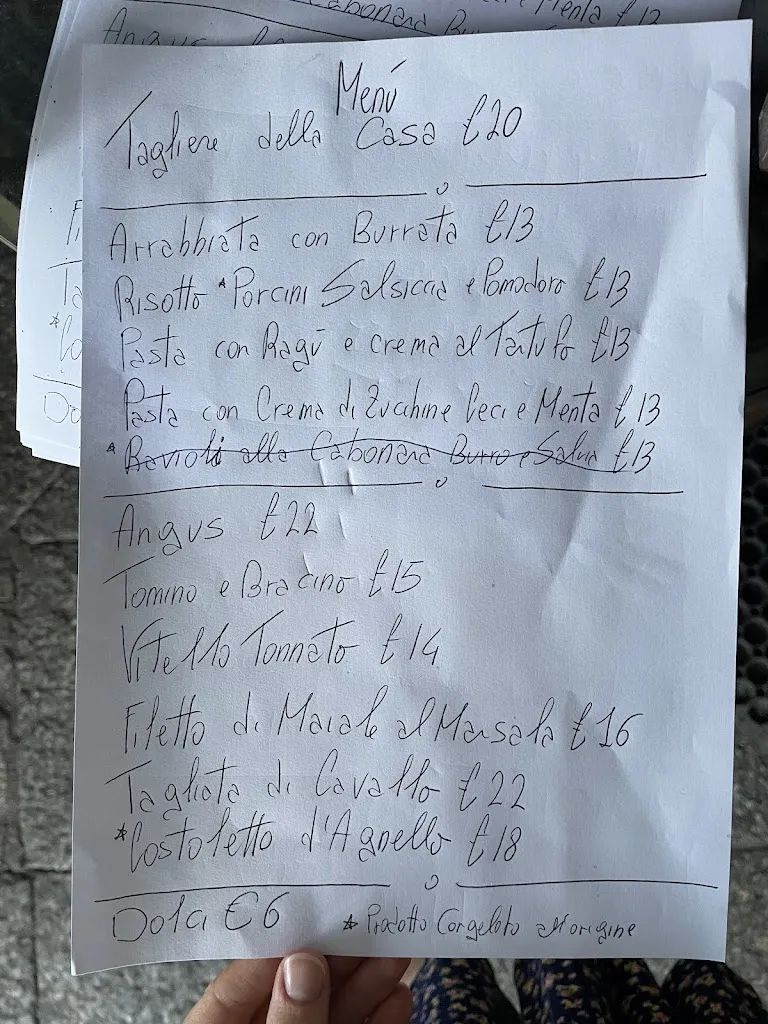 Cabonara Bu e Menta £13
Angus
Menú
Tagliere della Casa £20
Arrabbiata con Burrata £13
Risotto *Porcini Salsiccia e Pomodoro £13
Pasta con Ragú e crema al Tartufo £13
Pasta con Crema di Zucchine Ceci e Menta £13
* Ravioli alla Cabonara Burro e Salvia £13
Angus £22
Tomino e Bracino £15
Vitello Tonnato £14
Filetto di Maiale al Marsala £16
Tagliata di Cavallo £22
*Costoletto d'Agnello £18
Dolci €6
* Prodotto Congelato all'origine